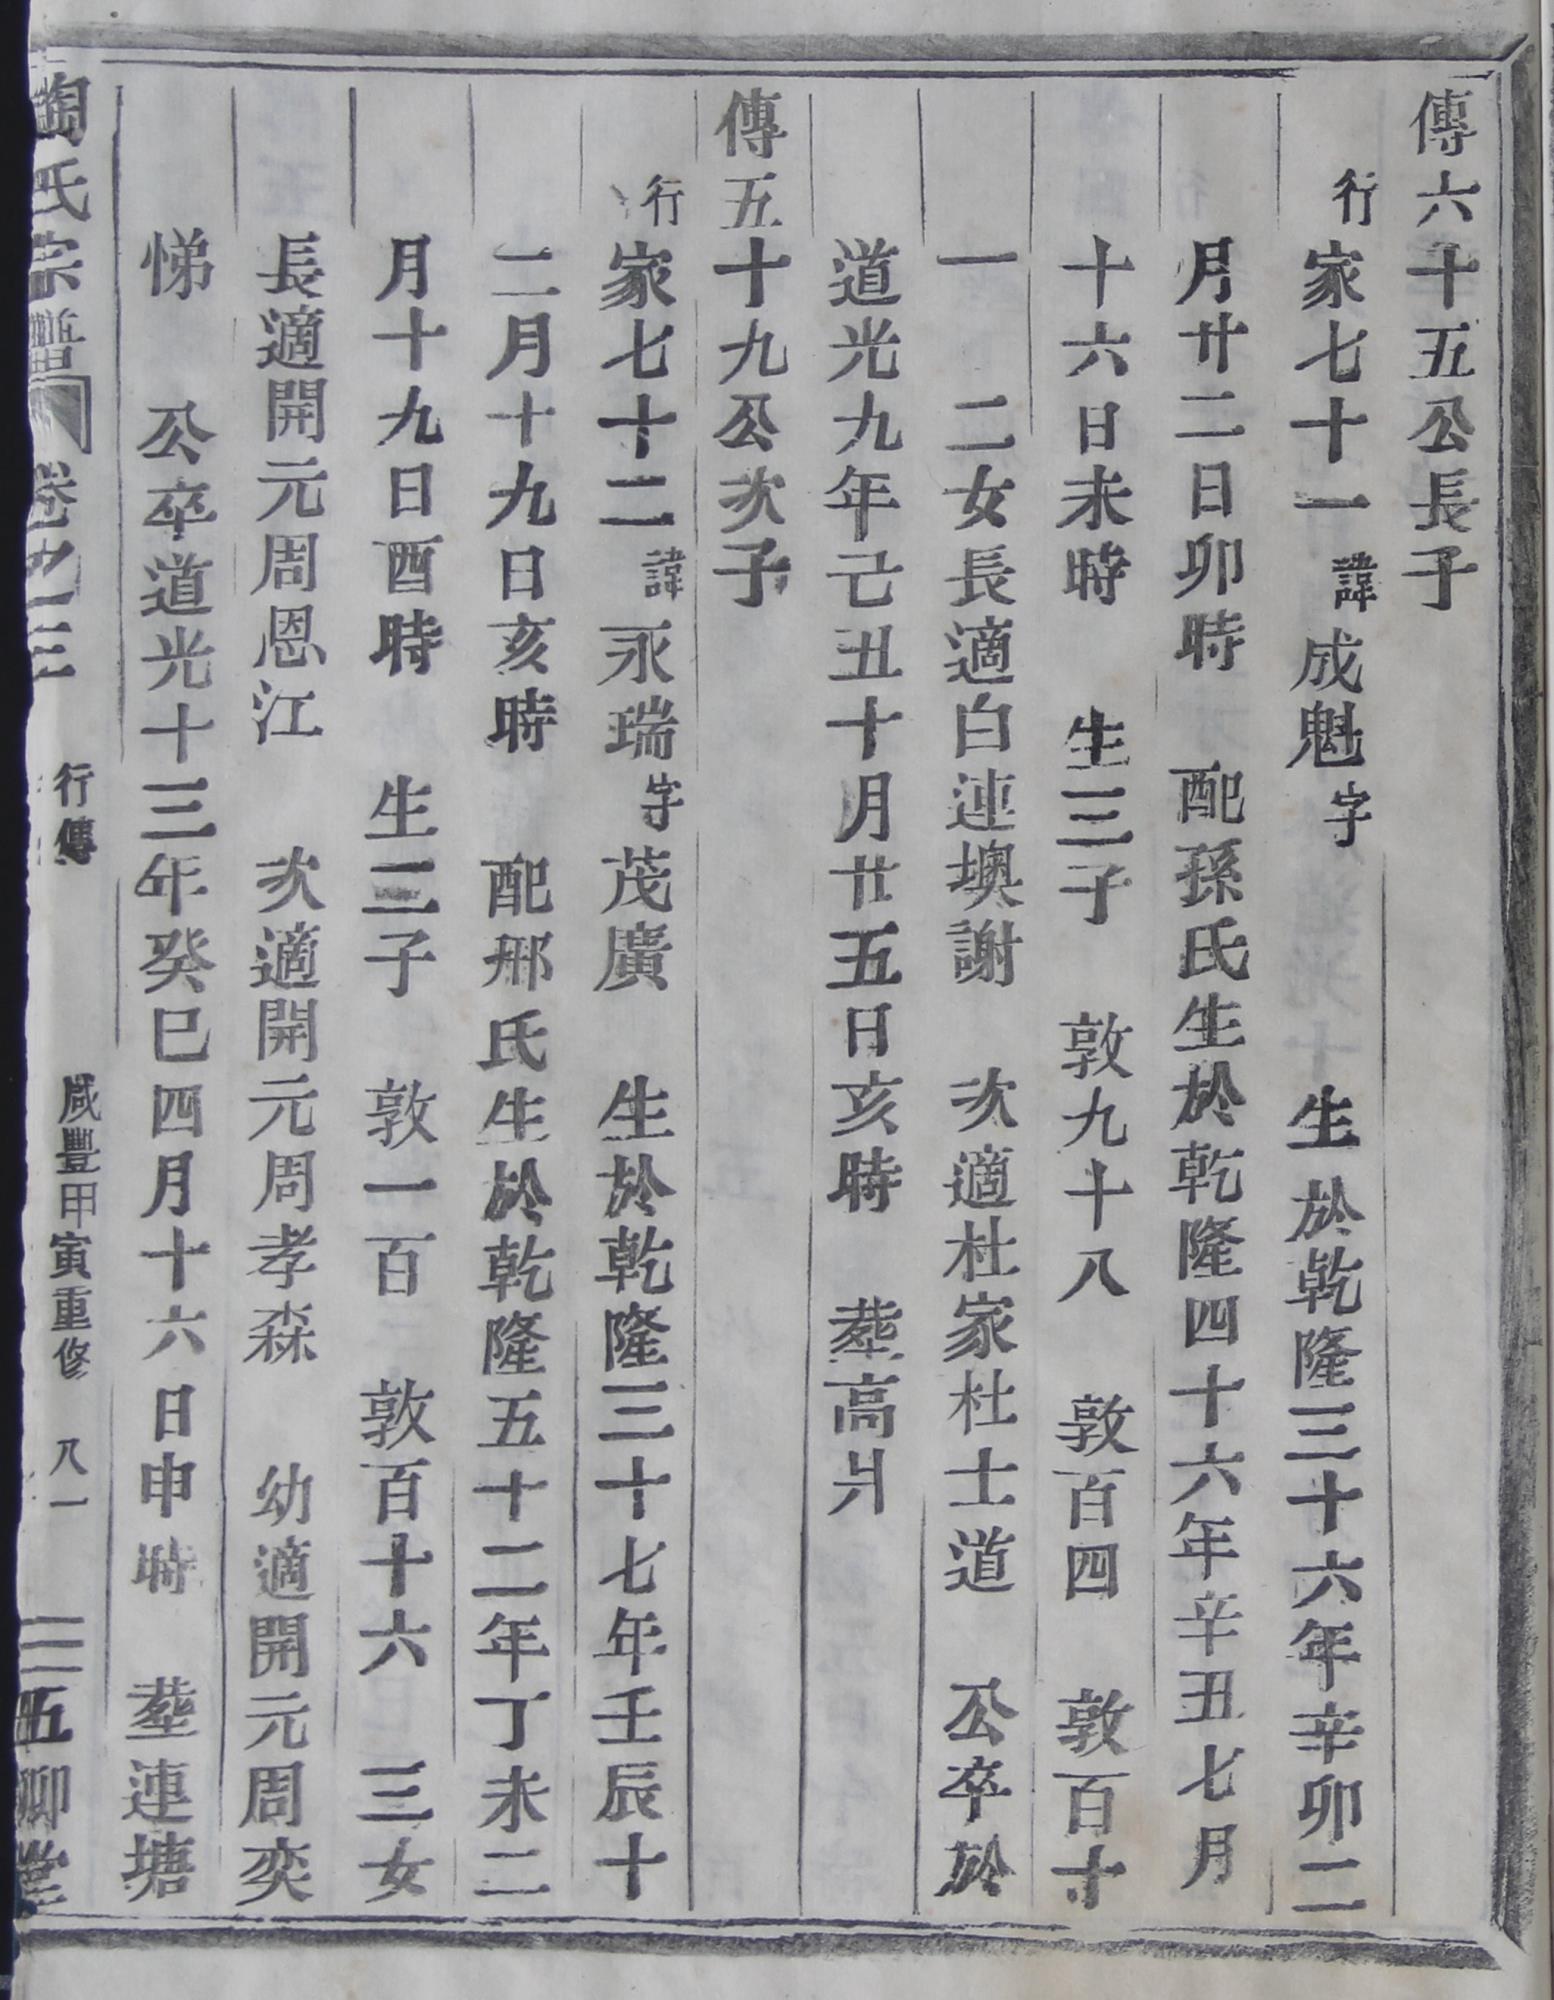 傳六十五公長子
行家七十一諱成魁字　生於乾隆三十六年辛卯二
月廿二日卯時　配孫氏生於乾隆四十六年辛丑七月
十六日未時　生三子　敦九十八　敦百四　敦百十
一　二女長適白連墺謝　次適杜家杜士道　公卒於
道光九年己丑十月廿五日亥時　塟高爿
傳五十九公次子
行家七十二諱永瑞字茂廣　生於乾隆三十七年壬辰十
二月十九日亥時　配邢氏生於乾隆五十二年丁未二
月十九日酉時　生二子　敦一百　敦百十六　三女
長適開元周恩江　次適開元周孝森　幼適開元周奕
悌　公卒道光十三年癸巳四月十六日申時　塟連塘
陶氏宗譜　卷之三　行傳　咸豐甲寅重修　八一　五柳堂